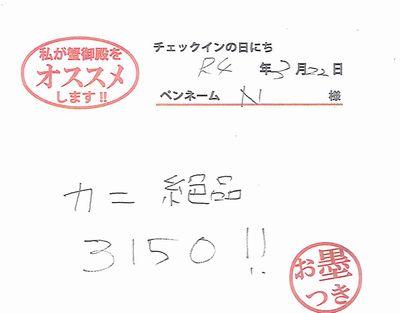 私が蟹御殿を
オススメ
します!!
チェックインの日にち
R4 年3月22日
ペンネーム N 様
カニ 絶品
3150!!
お墨
つき